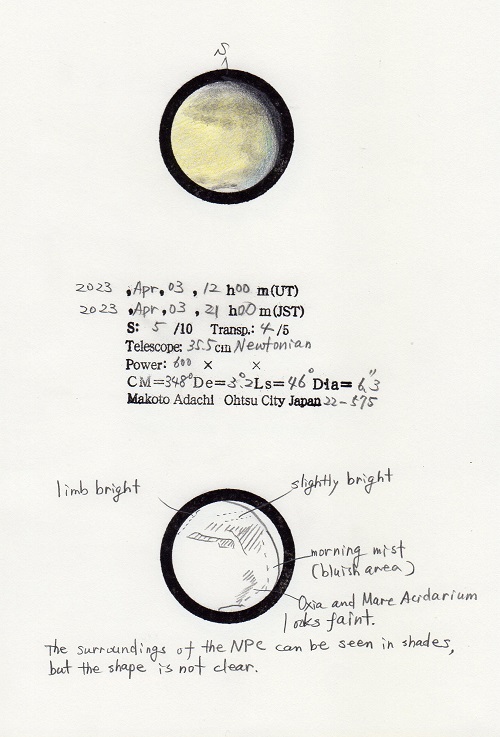 S
2023 , Apr, 03 , 12 h00 m(UT)
2023 , Apr, 03 , 21 h00 m(JST)
S: 5 /10 Transp.: 4/5
Telescope: 35.5cm Newtonian
Power: 600 × ×
CM=348°De=3.°2Ls=46°Dia=6."3
Makoto Adachi Ohtsu City Japan 22-575
limb bright
slightly bright
morning mist
(bluish area)
Oxia and Mare Acidarium
looks faint.
The surroundings of the NPC can be seen in shades,
but the shape is not clear.